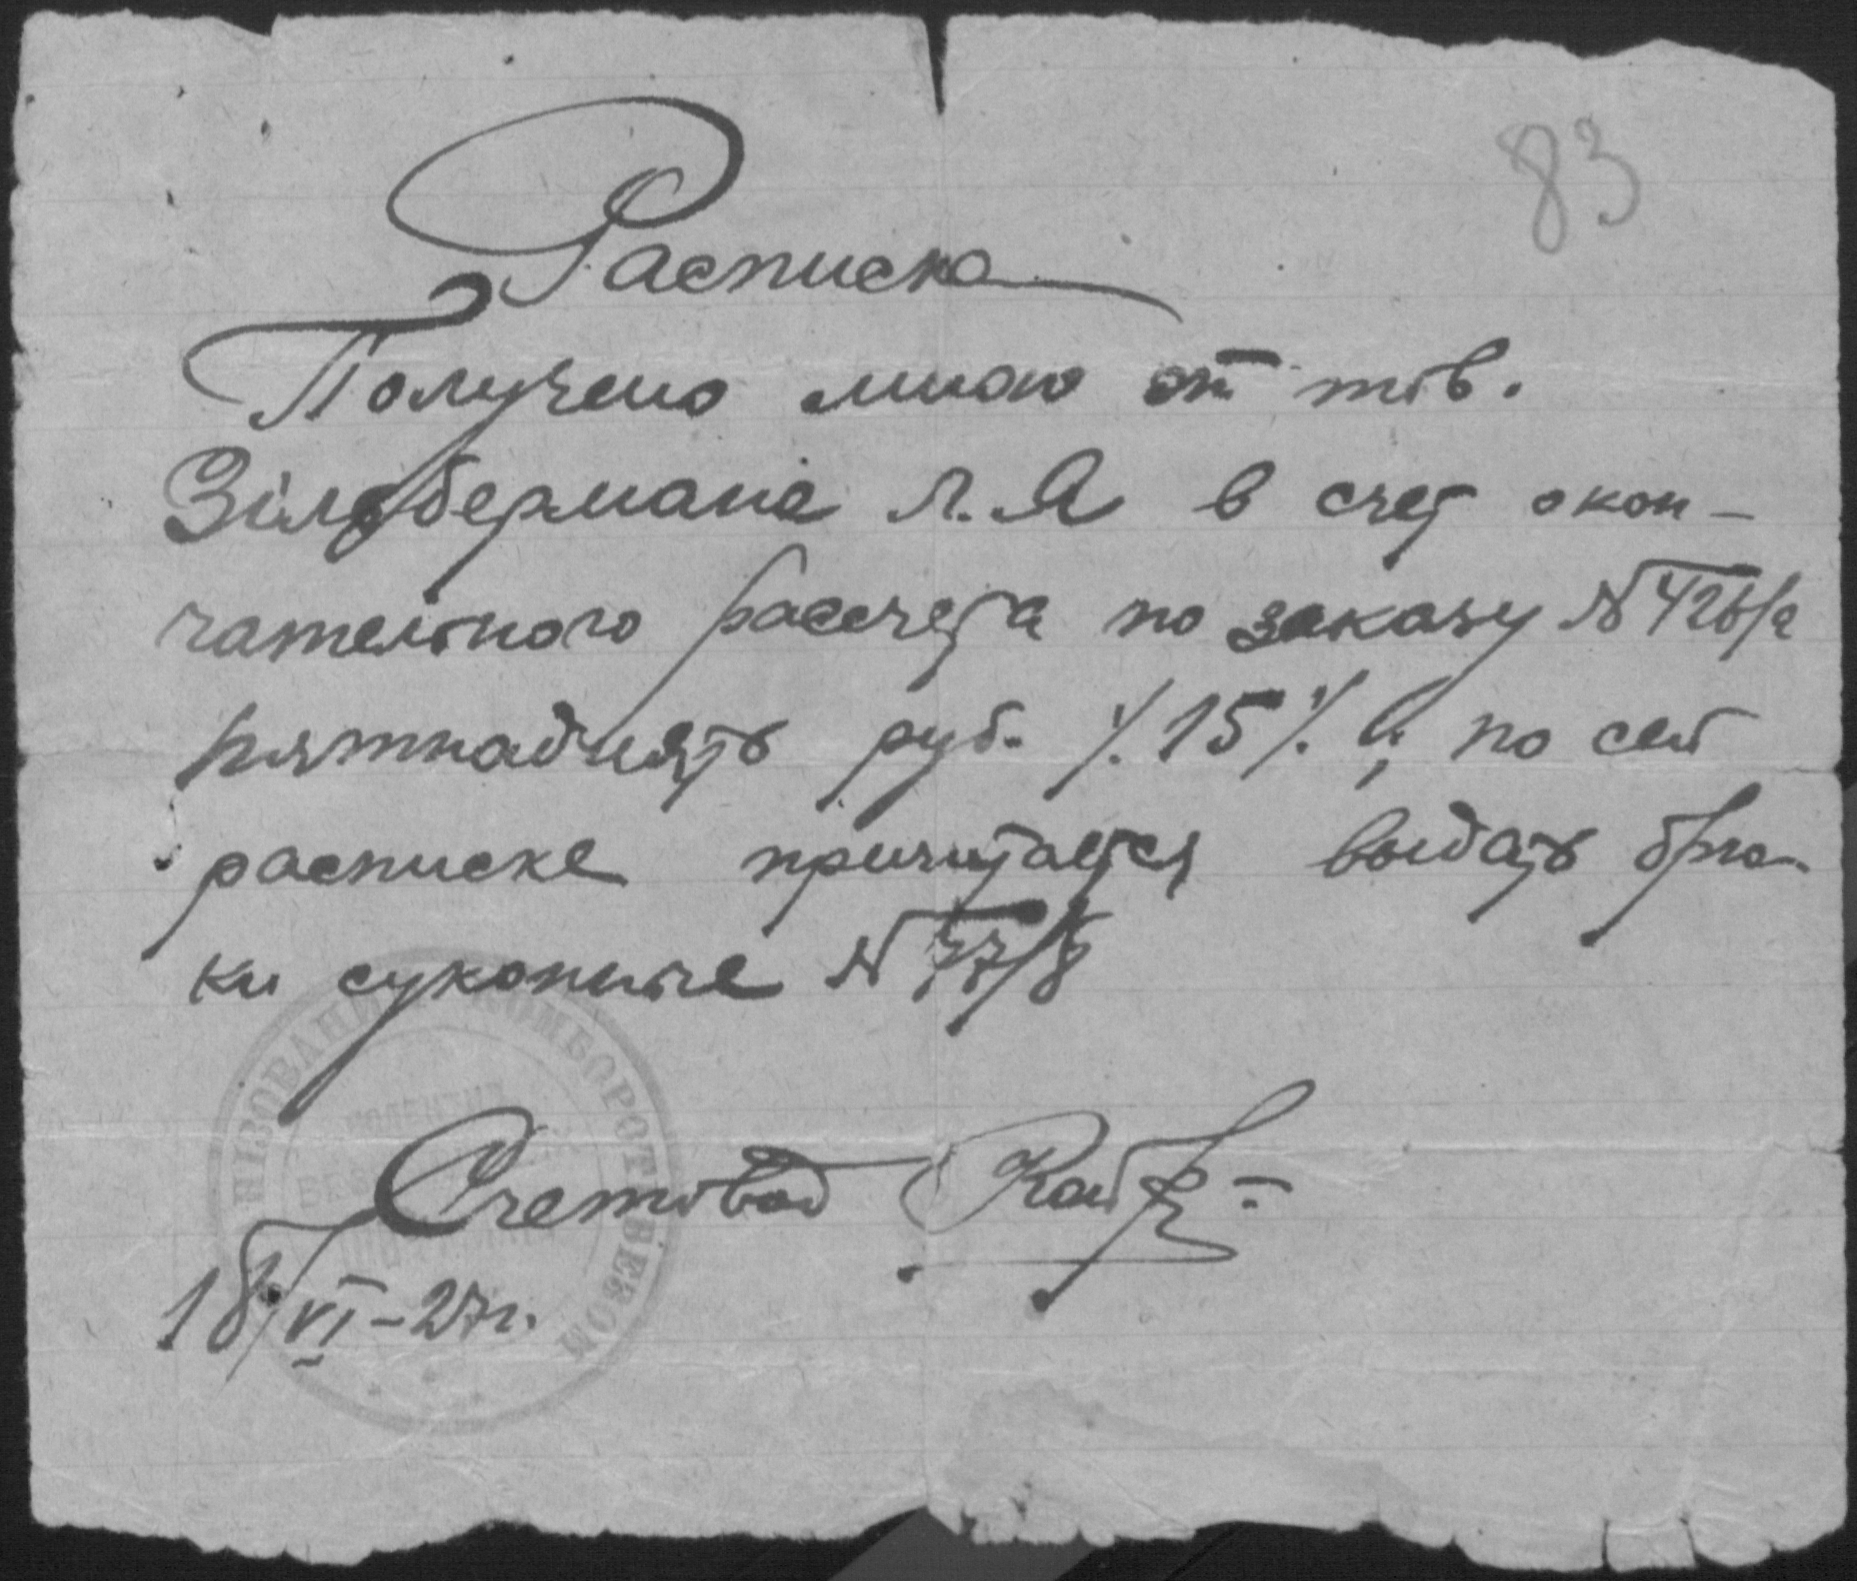 83
Расписка
Получено мною от тов.
Зільбермана Л.Я в счет окон-
чательного рассчета по заказу №426/а
пятнадцять руб. /.15/. и, по сей
расписке причитается выдать брю-
ки суконные № 77/8
Счетовод
18/VI-27г.
КОМБОРОТЬБЕЗОМ